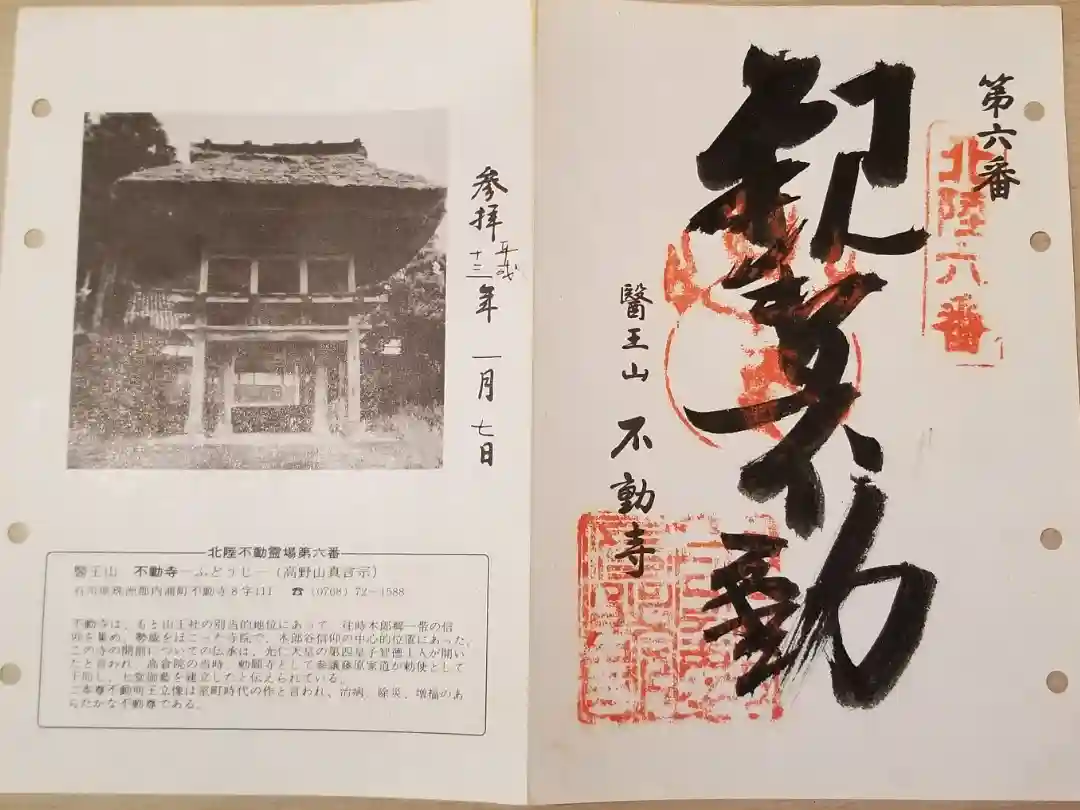 第六番
北陸六番
不動
醫王山 不動寺
参拝 平成十三年 一月 七日
北陸不動霊場第六番
醫王山 不動寺―ふどうじ―(高野山真言宗)
石川県珠洲郡内浦町不動寺8字111 ☎ (0768) 72-1588
不動寺は、もと山王社の別当的地位にあって、往時木郎郷一帯の信
仰を集め、勢威をほこった寺院で、木郎谷信仰の中心的位置にあった。
この寺の開創についての伝承は、光仁天皇の第四皇子智徳上人が開い
たと言われ、高倉院の当時、勅願寺として参議藤原家道が勅使として
下向し、七堂伽藍を建立したと伝えられている。
ご本尊不動明王立像は室町時代の作と言われ、治病、除災、増福のあ
らたかな不動尊である。